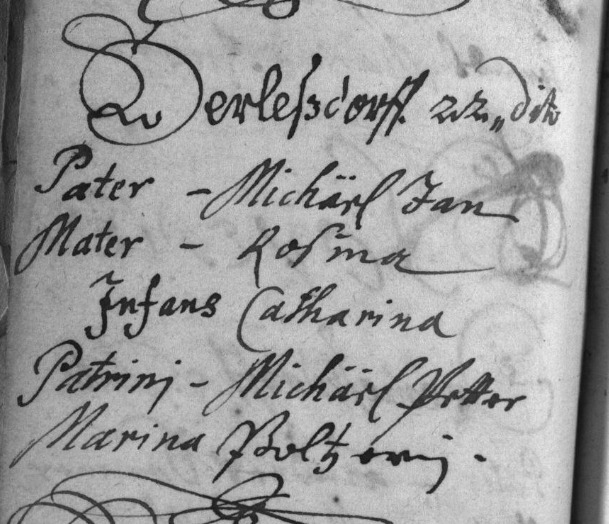 Berleßdorff. 22 „ dito
Pater – Michäel Jan
Mater – Rosina
Infans Catharina
Patrinj – Michäel Petter
Marina Poltzerin.